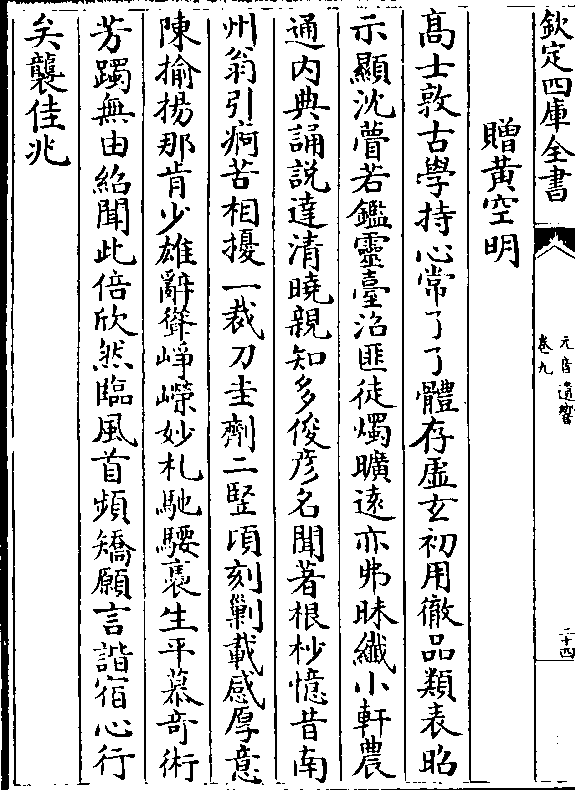 欽定四庫全書
元音遺響
卷九
二十四
贈黄空明
髙士敦古學持心常了了體存虚玄初用徹品類表昭
示顯沈瞢若鑑靈臺沼匪徒燭曠逺亦弗昧纎小軒農
通内典誦説達清曉親知多俊彦名聞著根杪憶昔南
州翁引痾苦相擾一裁刀圭劑二竪頃刻勦載感厚意
陳揄揚那肯少雄辭聳崢嶸妙札馳騕褭生平慕竒術
芳躅無由紹聞此倍欣然臨風首頻矯願言諧宿心行
矣襲佳兆